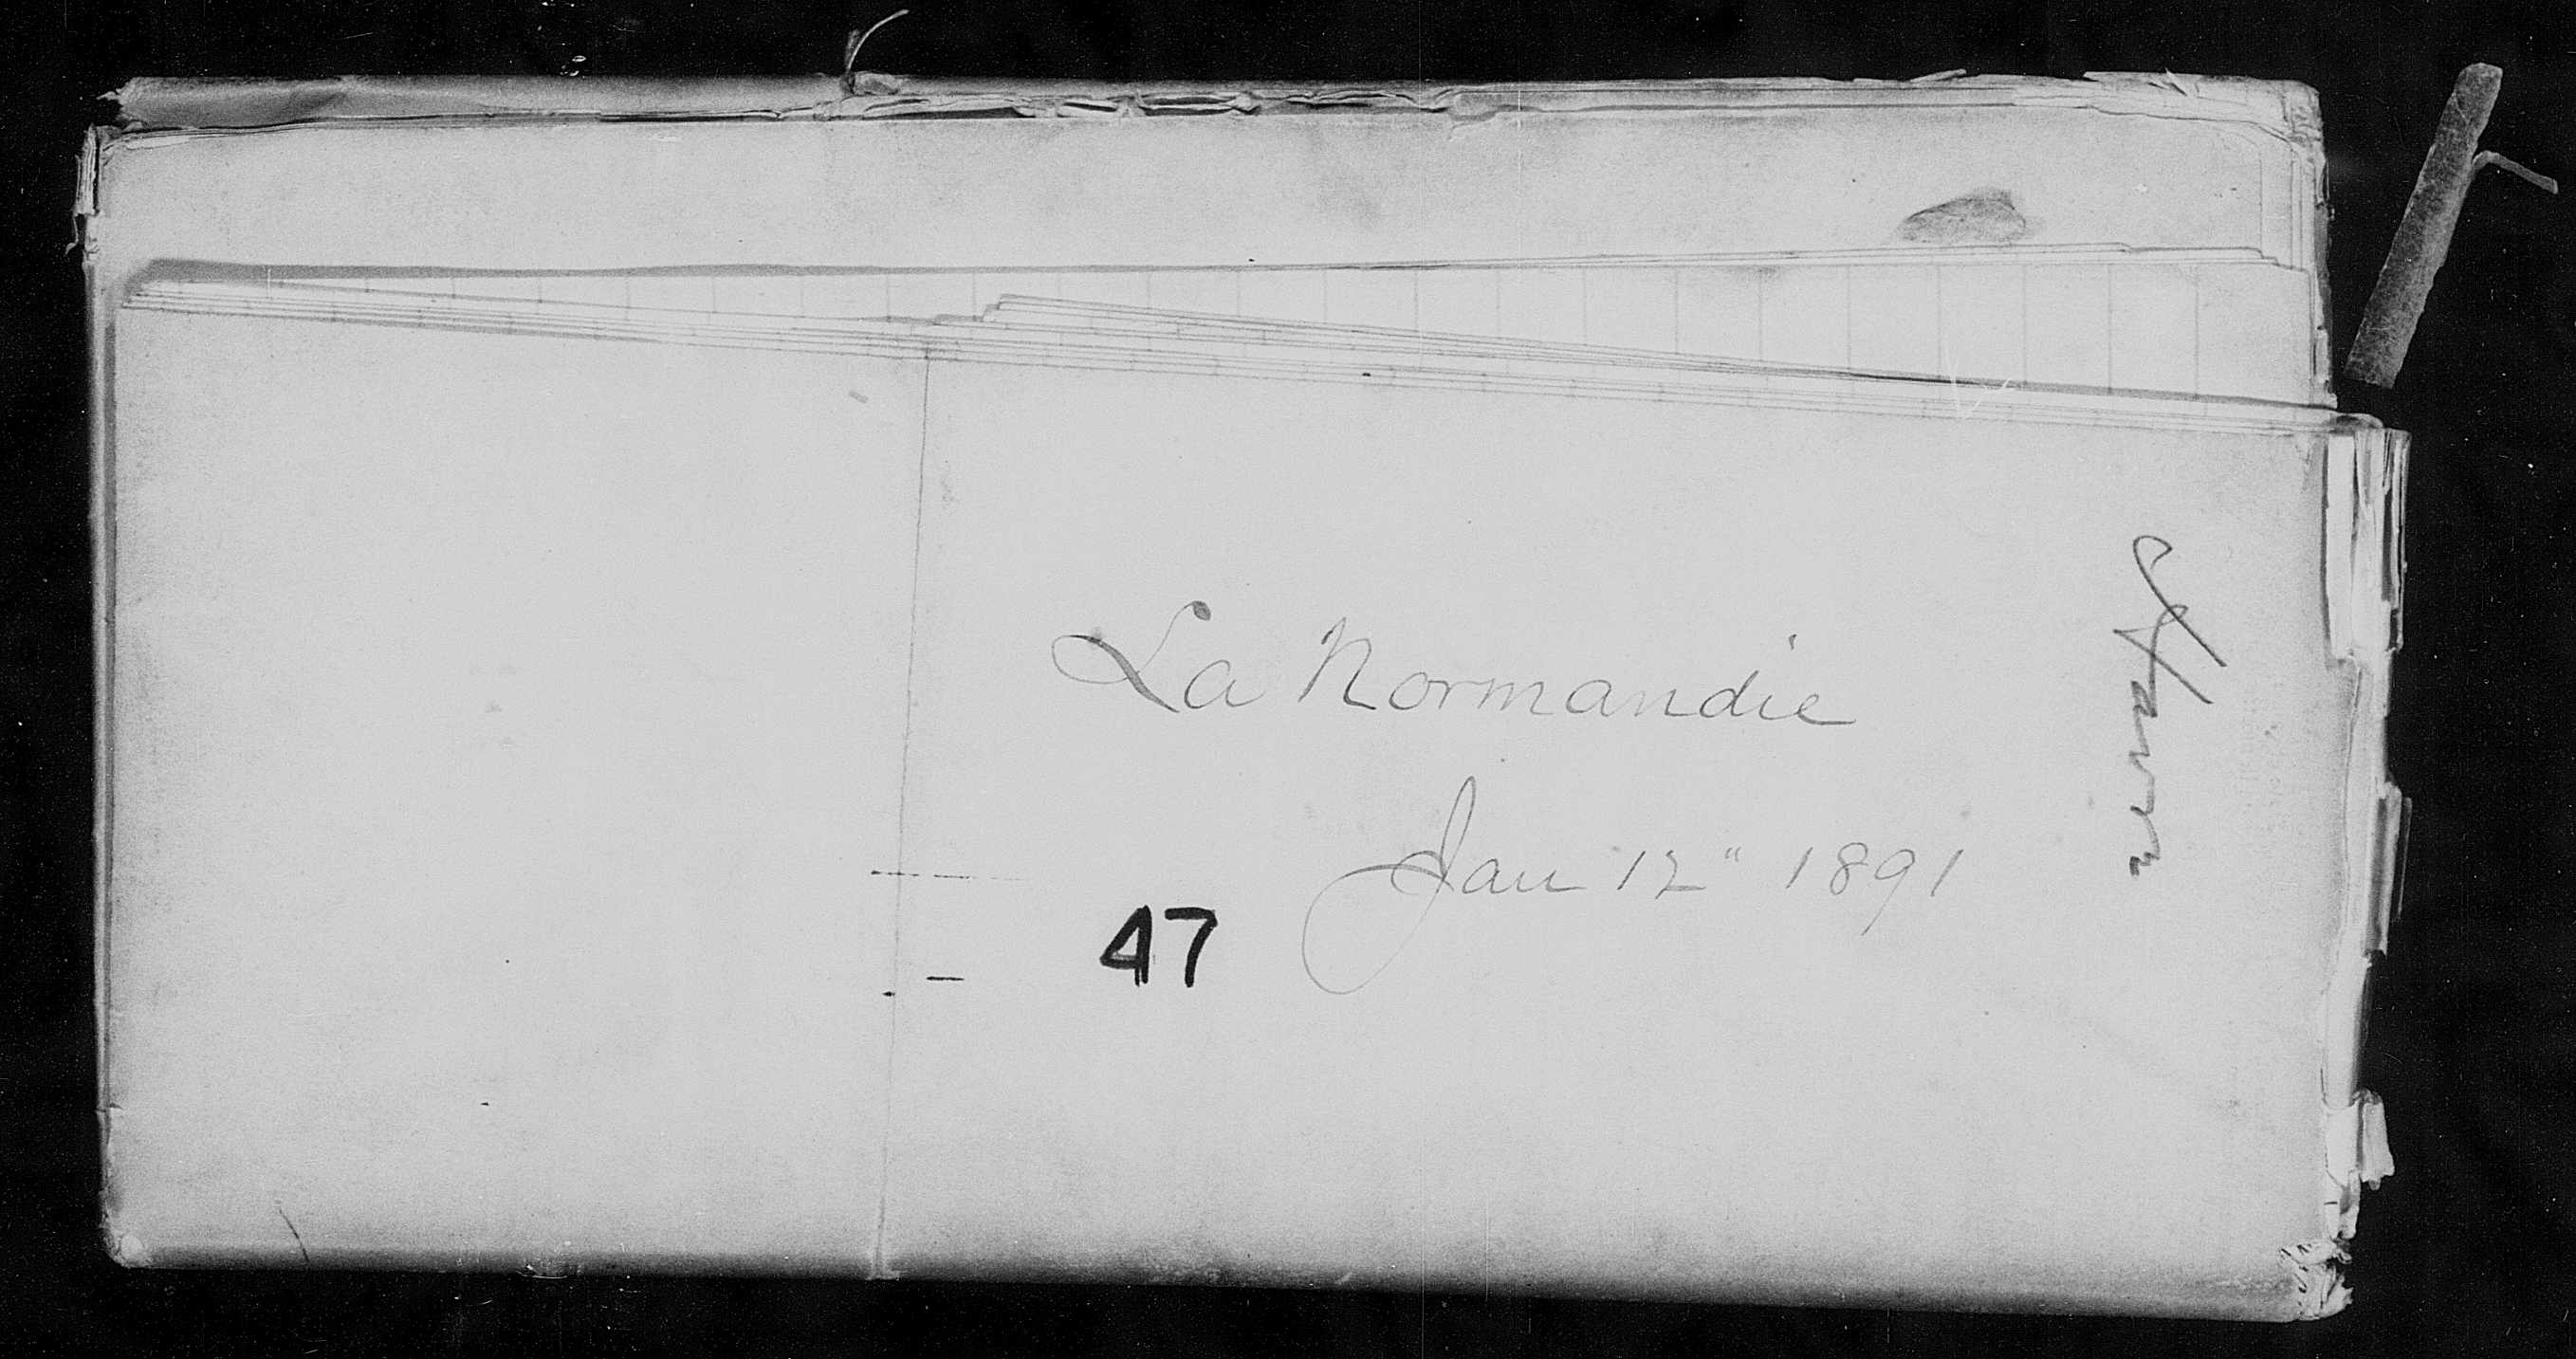 La Normandie
Jan 12" 1891
47
Havre